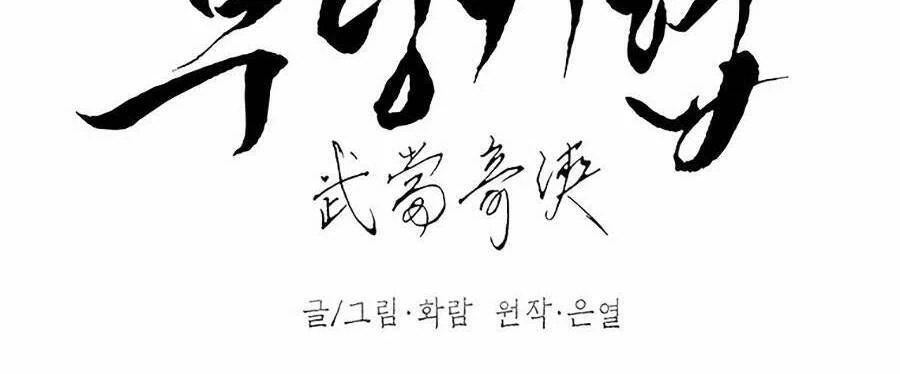 무당기협
武當奇俠
글/그림·화람 원작·은열